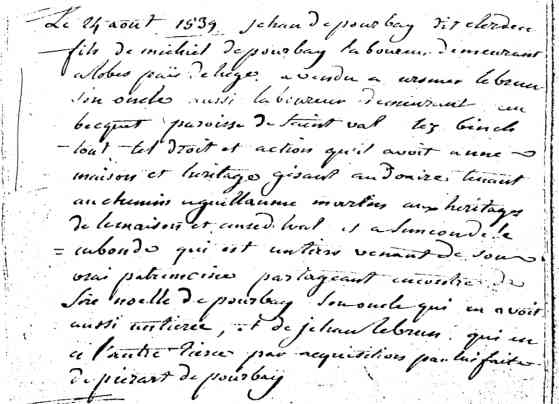 Le 24 aout 1539 Jehan de pourbay dit
fils de michiel de pourbay laboureur demeurant
a lobes païs de liege, a vendu a ursmer lebrun
son oncle aussi laboureur demeurant en
becquet paroisse de saint val lez binch
tout tel droit et action qu'il avoit a une
maison et heritage gisant au tenant
au chemin a guillaume martin aux heritages
de et a
= qui est un tiers venant de son
vrai patrimoine partageant encontre de
Sire noelle de pourbay son oncle qui en a voit
aussi un tierce, et de jehan lebrun qui en
a l'autre tierce par acquisition par lui faite
de pierart de pourbay